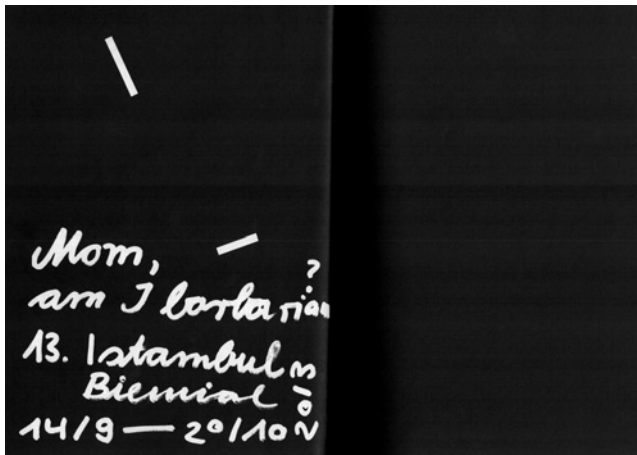 Mom,
am I barbarian?
13. Istambul
Biennial
14/9 — 20/10 2013